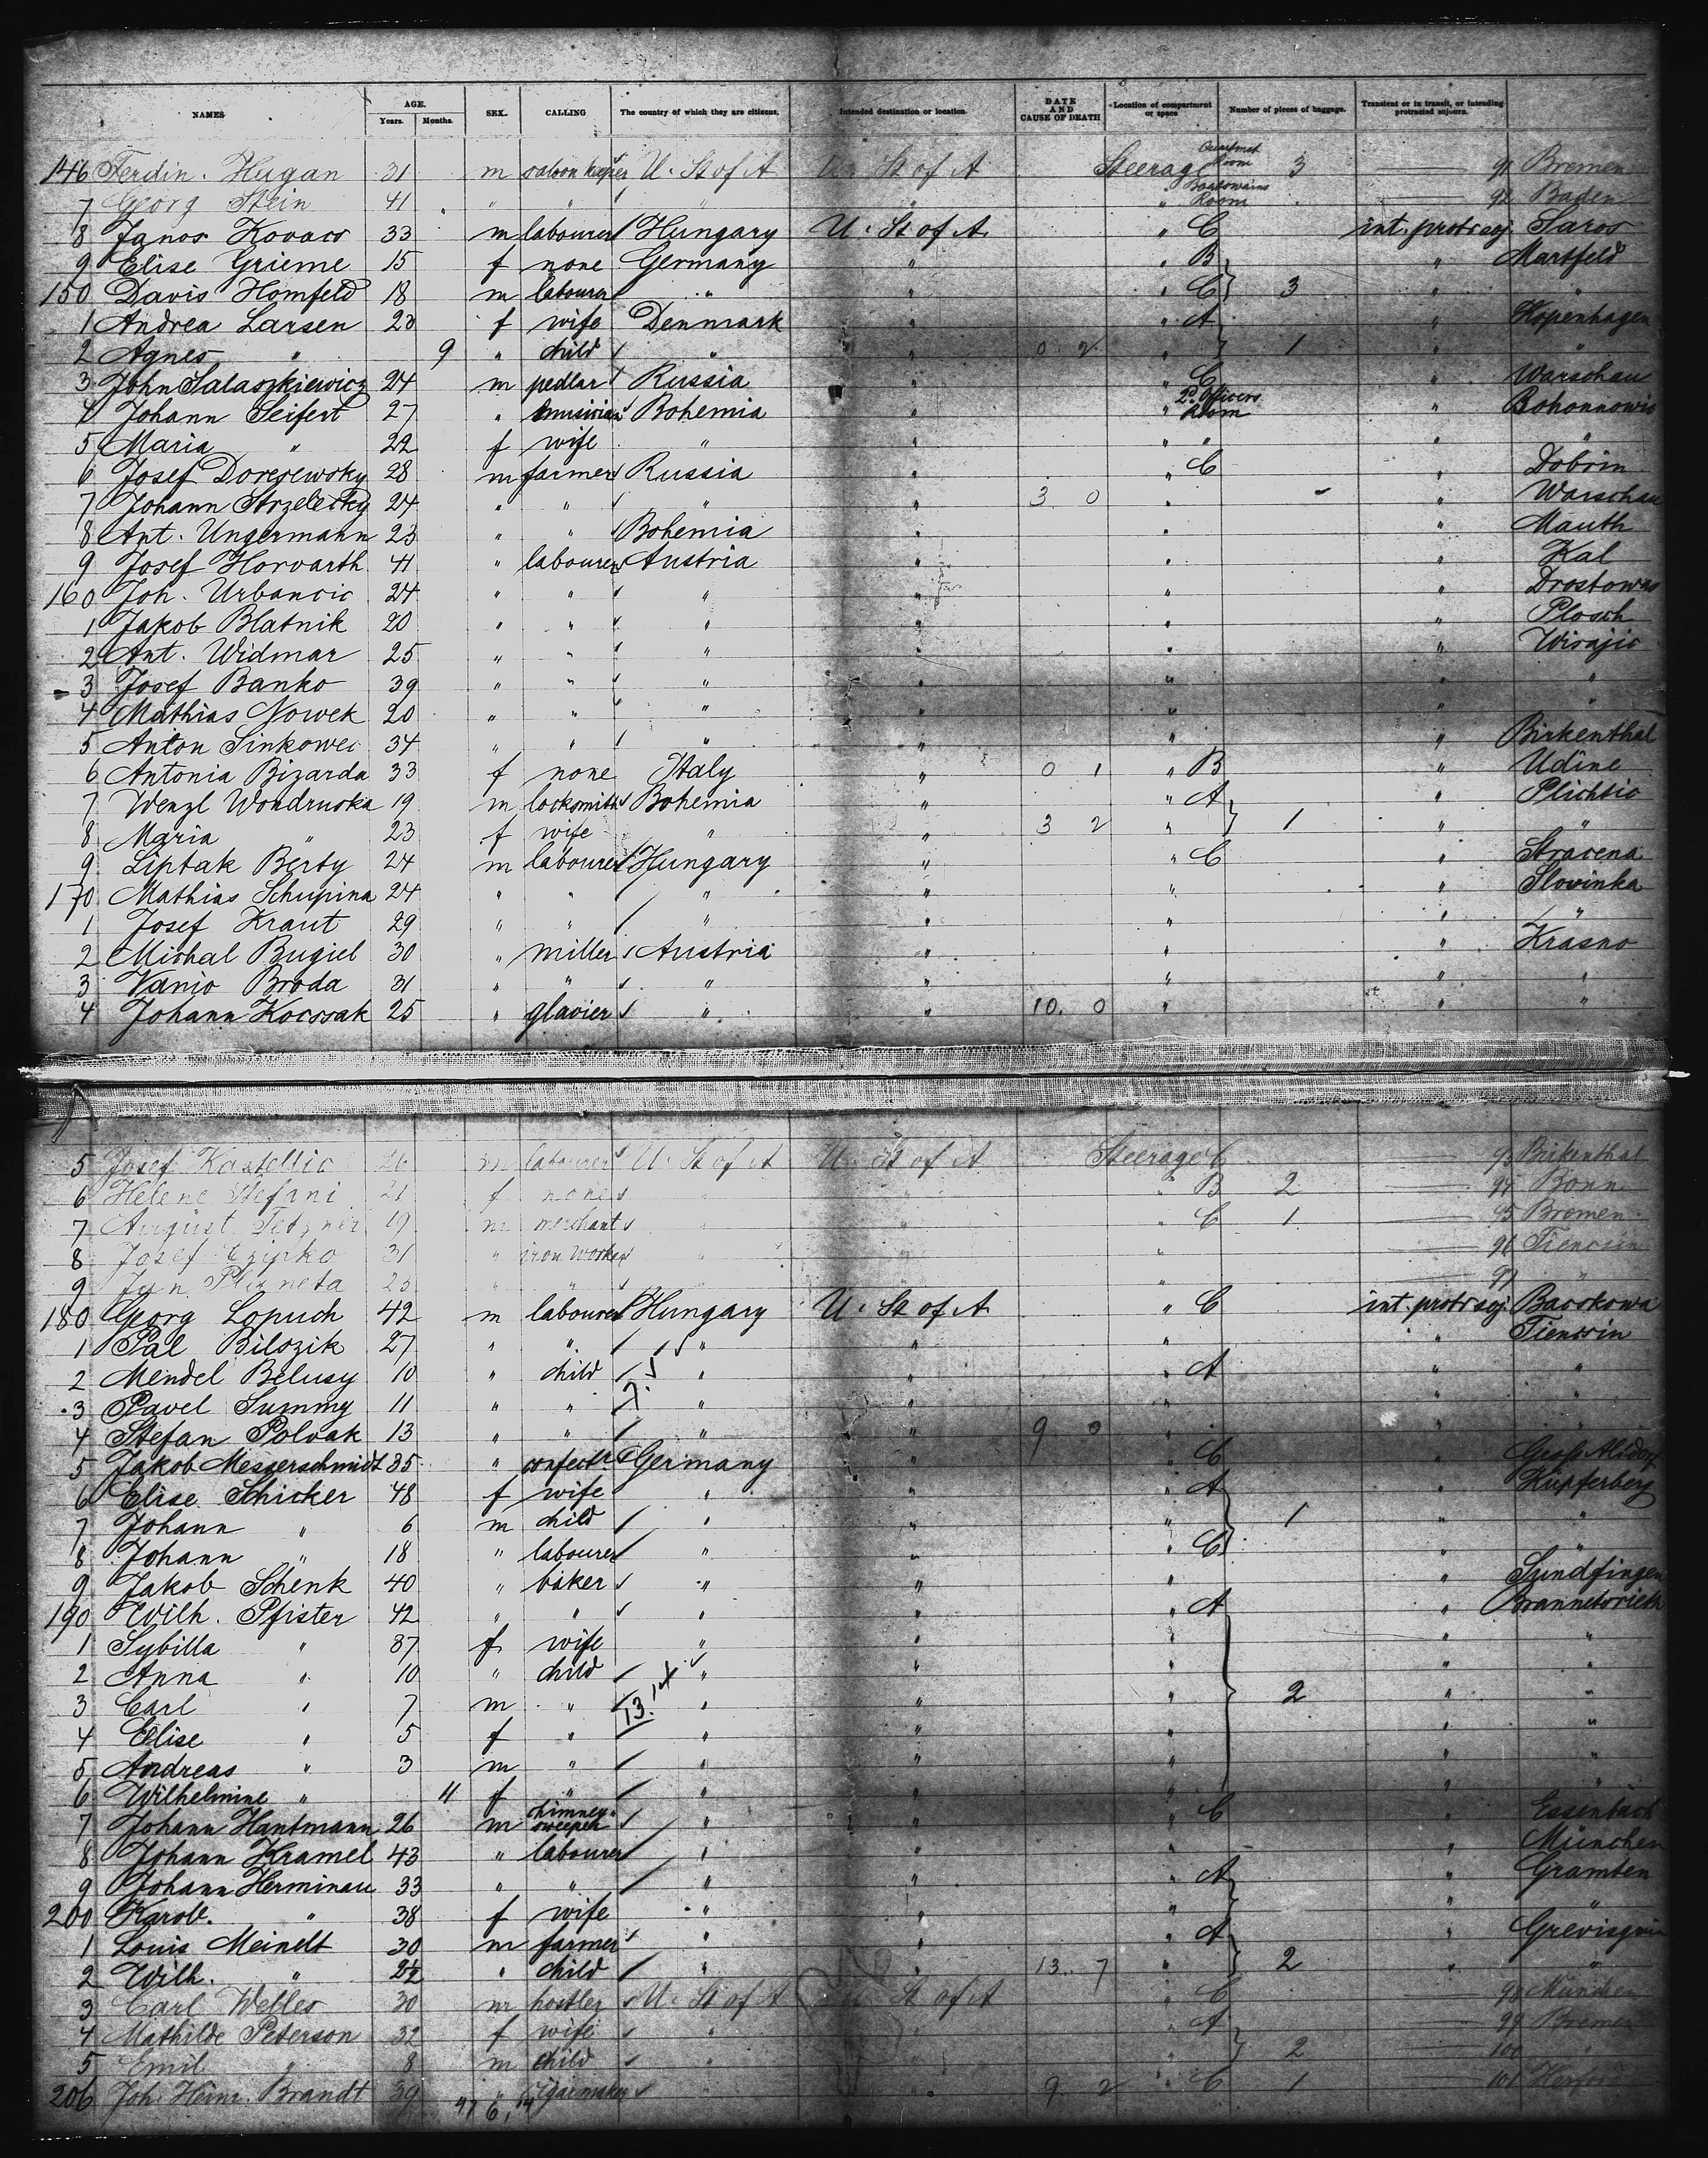 NAMES AGE. Years. Months. SEX. CALLING The country of which they are citizens. Intended destination or location. DATE AND CAUSE OF DEATH Location of compartment or space Number of pieces of baggage. Transient or in transit, or intending protracted sojourn.
146 Ferdin. Hugan 31 m saloon keeper U. St of A U. St of A Steerage Room 3 91 Bremen
7 Georg Stein 41 " " " " " Boatswains Room 92 Baden
8 Janos Kovacs 33 m labourer Hungary U. St of A. " C int. protr soj. Saros
9 Elise Grieme 15 f none Germany " " B " Martfeld
150 Davis Homfeld 18 m labourer " " " C 3 " "
1 Andrea Larsen 23 f wife Denmark " " A " Kopenhagen
2 Agnes " 9 " child " " 0 2 " 1 " "
3 John Salaszkiewicz 24 m pedlar Russia " " C " Warschau
4 Johann Seifert 27 " musician Bohemia " " 2d Officers Room "
5 Maria " 22 f wife " " " " " "
6 Josef Dorejewsky 28 m farmer Russia " " C " Dobrin
7 Johann Strzelecky 24 " " " " 3 0 " " Warschau
8 Ant. Ungermann 23 " " Bohemia " " " Mauth
9 Josef Horvarth 41 " labourer Austria " " " Kal
160 Joh. Urbancic 24 " " " " " "
1 Jakob Blatnik 20 " " " " " " Plosch
2 Ant. Widmar 25 " " " " " " Wisajic
3 Josef Banko 39 " " " " " " "
4 Mathias Nowek 20 " " " " " "
5 Anton Sinkowec 34 " " " " " " Birkenthal
6 Antonia Bizarda 33 f none Italy " 0 1 " B " Udine
7 Wenzl Wondruska 19 m locksmith Bohemia " " A "
8 Maria " 23 f wife " " 3 2 " 1 " "
9 Liptak Berty 24 m labourer Hungary " " C " Stracena
170 Mathias Schupina 24 " " " " " " Slovinka
1 Josef Kraut 29 " " " " " " "
2 Michal Bugiel 30 " miller Austria " " " Krasno
3 Vanio Broda 31 " " " " " " "
4 Johann Kocssak 25 " glasier " " 10. 0 " " "
5 Josef Kastellic 26 m labourer U. St of A U. St of A Steerage C 93 Birkenthal
6 Helene Stefani 21 f none " " " B 2 94 Bonn
7 August Tetzner 19 m merchant " " " C 1 95 Bremen
8 Josef Czipko 31 " iron Worker " " " 96 Tiencsin
9 Jan Planeta 25 " " " " " 97 "
180 Georg Lopuch 42 m labourer Hungary U. St of A " C int. protr soj. Bacskowa
1 Pal Bilszik 27 " " " " " " Tiencsin
2 Mendel Belusy 10 " child " " " A " "
3 Pavel Summy 11 " " " " " " "
4 Stefan Polvak 13 " " " " 9 0 " " "
5 Jakob Messerschmidt 35 " confectr. Germany " " C " Gross
6 Elise Schicker 48 f wife " " " A " Kupferberg
7 Johann " 6 m child " " " 1 " "
8 Johann " 18 " labourer " " " C " "
9 Jakob Schenk 40 " baker " " " " Sundfingen
190 Wilh. Pfister 42 " " " " " A "
1 Sybilla " 37 f wife " " " " "
2 Anna " 10 " child " " " " "
3 Carl " 7 m " " " " 2 " "
4 Elise " 5 f " " " " " "
5 Andreas " 3 m " " " " " "
6 Wilhelmine " 11 f " " " " " "
7 Johann Hantmann 26 m chimney sweeper " " " C Essenbach
8 Johann Kramel 43 " labourer " " " " München
9 Johann Herminau 33 " " " " " A " Gramten
200 Karol. " 38 f wife " " " " "
1 Louis Meinelt 30 m farmer " " " A "
2 Wilh. " 2½ " child " " 13. 7 " 2 " "
3 Carl Welles 30 m hostler U. St of A U. St of A " C 98 München
4 Mathilde Peterson 32 f wife " " " A 99 Bremen
5 Emil " 8 m child " " " 2 100 "
206 Joh. Heinr. Brandt 39 " Cigarmaker " " 9 2 " C 1 101